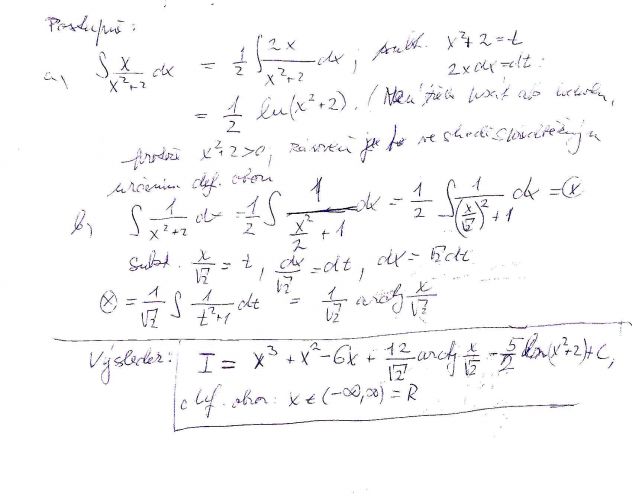 Postupně:
a, ∫ x/(x²+2) dx = 1/2 ∫ 2x/(x²+2) dx ; subst. x²+2 = t
2x dx = dt
= 1/2 ln(x²+2). (Není třeba psát abs
protože x²+2>0, je to ve shodě s
určením def. oboru
b, ∫ 1/(x²+2) dx = 1/2 ∫ 1/(x²/2 + 1) dx = 1/2 ∫ 1/((x/√2)² + 1) dx = ⓧ
subst. x/√2 = t, dx/√2 = dt, dx = √2 dt
ⓧ = 1/√2 ∫ 1/(t²+1) dt = 1/√2 arctg x/√2
Výsledek: I = x³ + x² - 6x + 12/√2 arctg x/√2 - 5/2 ln(x²+2) + C,
def. obor: x ∈ (-∞, ∞) = R